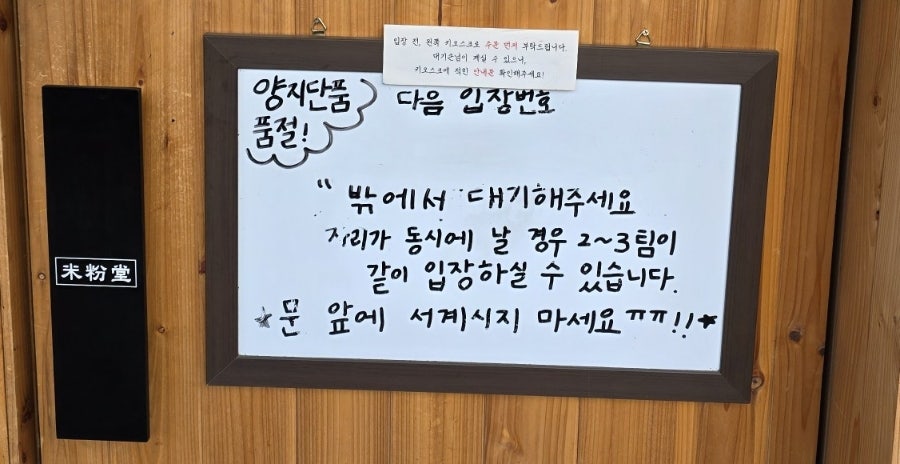 입장 전, 왼쪽 키오스크로 주문 먼저 부탁드립니다.
대기손님이 계실 수 있으니,
키오스크에 적힌 안내문 확인해주세요!
양지단품
품절!
다음 입장번호
" 밖에서 대기해주세요
자리가 동시에 날 경우 2~3팀이
같이 입장하실 수 있습니다.
★문 앞에 서계시지 마세요ㅠㅠ!!★
米粉堂